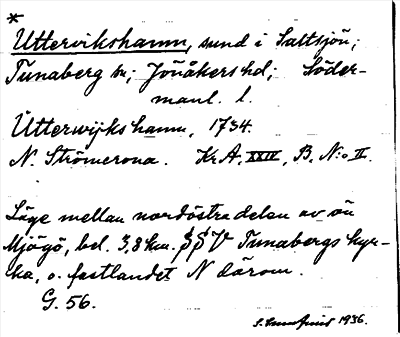 *
Uttervikshamn, sund i Saltsjön;
Tunaberg sn; Jönåkers hd; Söder-
manl. l.
Utterwijks hamn, 1734.
N. Strömcrona. Kr A, XXIV, B, N:o II.
Läge mellan nordöstra delen av ön
Mjögö, bel. 3,8 km. SSV Tunabergs kyr-
ka, o. fastlandet N därom.
G. 56.
1936.